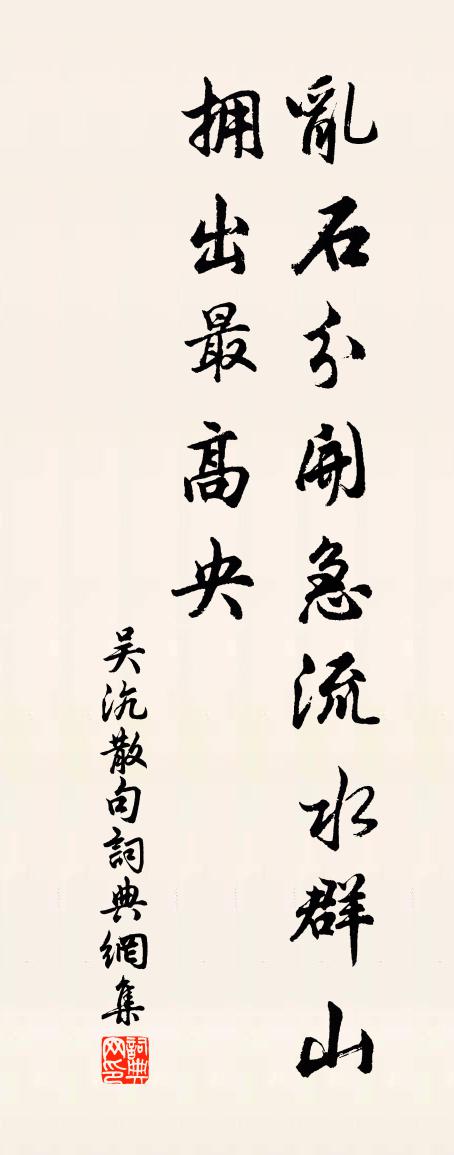 亂石分開急流水群山
拥出最高央
吴沉散句詞典網集
詞典网印